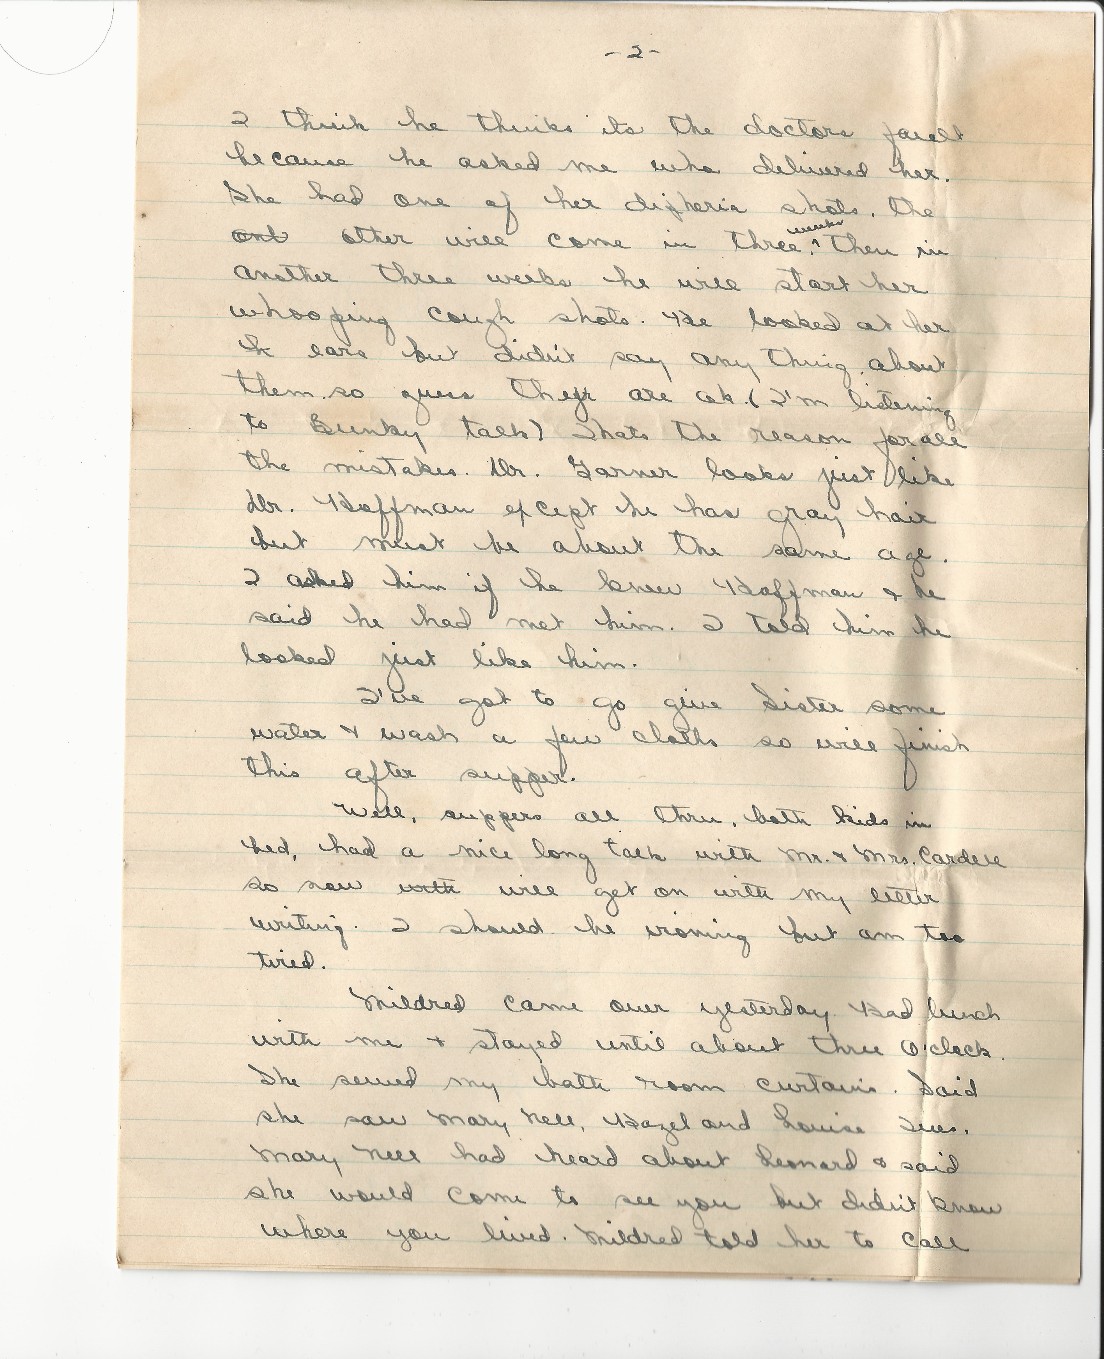 -2-
I think he thinks its the doctors fault
because he asked me who delivered her.
She had one of her diptheria shots. The
other will come in three weeks, then in
another three weeks he will start her
whooping cough shots. He looked at her
ears but didn't say any thing about
them so guess they are ok. (I'm listening
to Bunky talk) Thats the reason for all
the mistakes. Dr. Garner looks just like
Dr. Hoffman except he has gray hair
but must be about the same age.
I asked him if he knew Hoffman & he
said he had met him. I told him he
looked just like him.
I've got to go give Sister some
water & wash a few cloths so will finish
this after supper.
Well, suppers all thru, both kids in
bed, had a nice long talk with Mr. & Mrs. Cardell
so now will get on with my letter
writing. I should be ironing but am too
tired.
Mildred came over yesterday. Had lunch
with me & stayed until about three O'clock.
She sewed my bath room curtains. Said
she saw Mary Nell, Hazel and Louise Tues.
Mary Nell had heard about Leonard & said
she would come to see you but didn't know
where you lived. Mildred told her to call